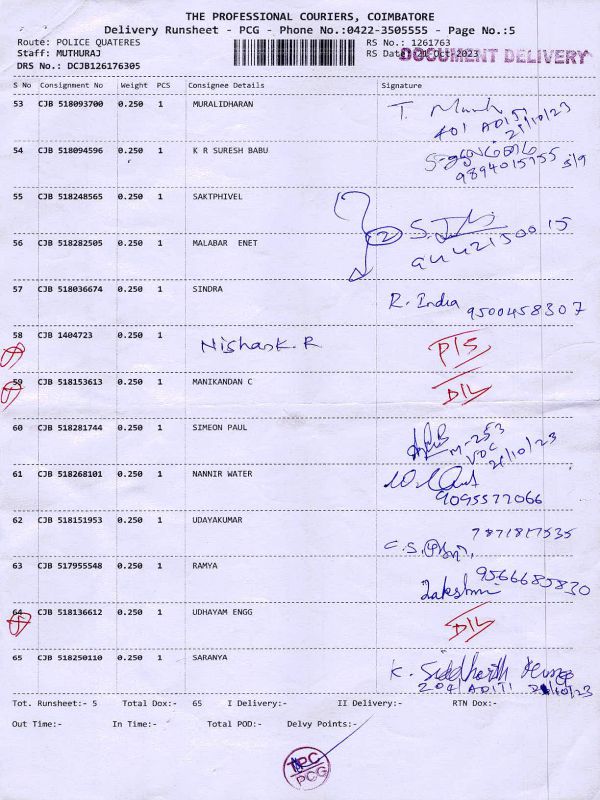 THE PROFESSIONAL COURIERS, COIMBATORE
Delivery Runsheet - PCG - Phone No.:0422-3505555 - Page No.:5
Route: POLICE QUATERES RS No.: 1261763
Staff: MUTHURAJ RS Date: 21 Oct-2023 DOCUMENT DELIVERY
DRS No.: DCJB126176305
S No Consignment No Weight PCS Consignee Details Signature
53 CJB 518093700 0.250 1 MURALIDHARAN
401 ADITI
21/10/23
54 CJB 518094596 0.250 1 K R SURESH BABU
9894015755
55 CJB 518248565 0.250 1 SAKTPHIVEL
56 CJB 518282505 0.250 1 MALABAR ENET 2
57 CJB 518036674 0.250 1 SINDRA R. India 9500458307
58 CJB 1404723 0.250 1 Nishank.R P/S
59 CJB 518153613 0.250 1 MANIKANDAN C D/L
60 CJB 518281744 0.250 1 SIMEON PAUL M-253
VOC
21/10/23
61 CJB 518268101 0.250 1 NANNIR WATER
9095577066
62 CJB 518151953 0.250 1 UDAYAKUMAR 7871817535
63 CJB 517955548 0.250 1 RAMYA 9566685830
Lakshmi
64 CJB 518136612 0.250 1 UDHAYAM ENGG D/L
65 CJB 518250110 0.250 1 SARANYA K. Siddharth
204 ADITI
Tot. Runsheet:- 5 Total Dox:- 65 I Delivery:- II Delivery:- RTN Dox:-
Out Time:- In Time:- Total POD:- Delvy Points:-
TPC
PCG